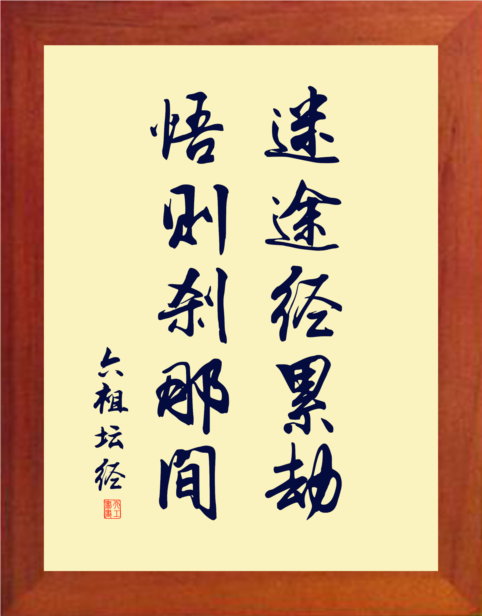 迷途经累劫
悟则刹那间
六祖坛经